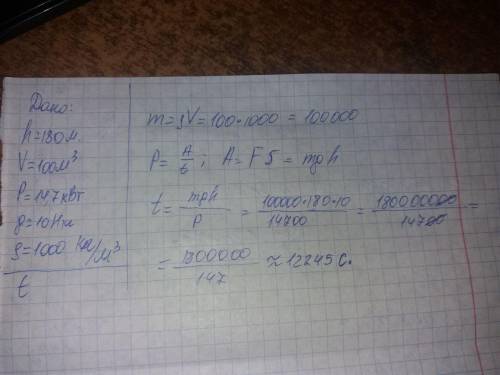 Дано:
h=180м
V=100м³
P=147кВт
g=10Н/кг
ρ=1000 кг/м³
t
m=ρV=100·1000=100000
P=A/t; A=FS=mgh
t=mgh/P=10000·180·10/14700=180000000/14700=
=1800000/147≈12245с.